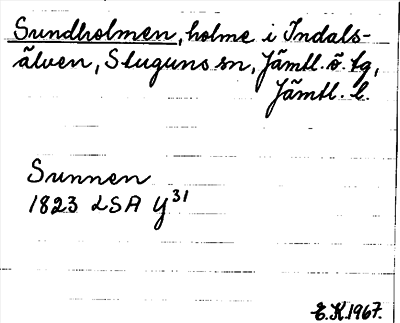 Sundholmen, holme i Indals-
älven, Stuguns sn, Jämtl. ö. tg,
Jämtl. l.
Sunnen
1823 LSA Y³¹
E.K.1967.